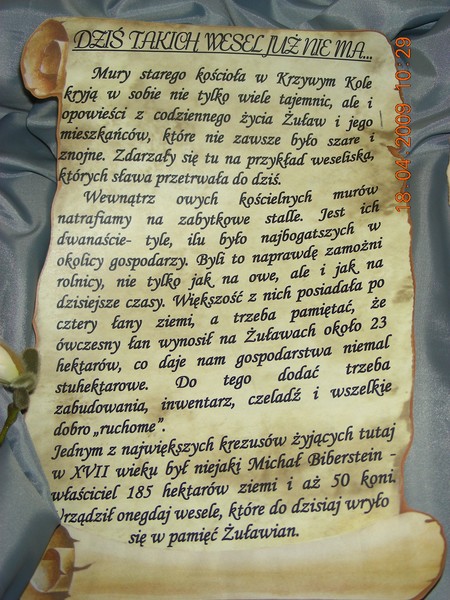 DZIŚ TAKICH WESEL JUŻ NIE MA...
Mury starego kościoła w Krzywym Kole
kryją w sobie nie tylko wiele tajemnic, ale i
opowieści z codziennego życia Żuław i jego
mieszkańców, które nie zawsze było szare i
znojne. Zdarzały się tu na przykład weseliska,
których sława przetrwała do dziś.
Wewnątrz owych kościelnych murów
natrafiamy na zabytkowe stalle. Jest ich
dwanaście- tyle, ilu było najbogatszych w
okolicy gospodarzy. Byli to naprawdę zamożni
rolnicy, nie tylko jak na owe, ale i jak na
dzisiejsze czasy. Większość z nich posiadała po
cztery łany ziemi, a trzeba pamiętać, że
ówczesny łan wynosił na Żuławach około 23
hektarów, co daje nam gospodarstwa niemal
stuhektarowe. Do tego dodać trzeba
zabudowania, inwentarz, czeladź i wszelkie
dobro „ruchome”.
Jednym z największych krezusów żyjących tutaj
w XVII wieku był niejaki Michał Biberstein -
właściciel 185 hektarów ziemi i aż 50 koni.
Urządził onegdaj wesele, które do dzisiaj wryło
się w pamięć Żuławian.
18-04-2009 10:29